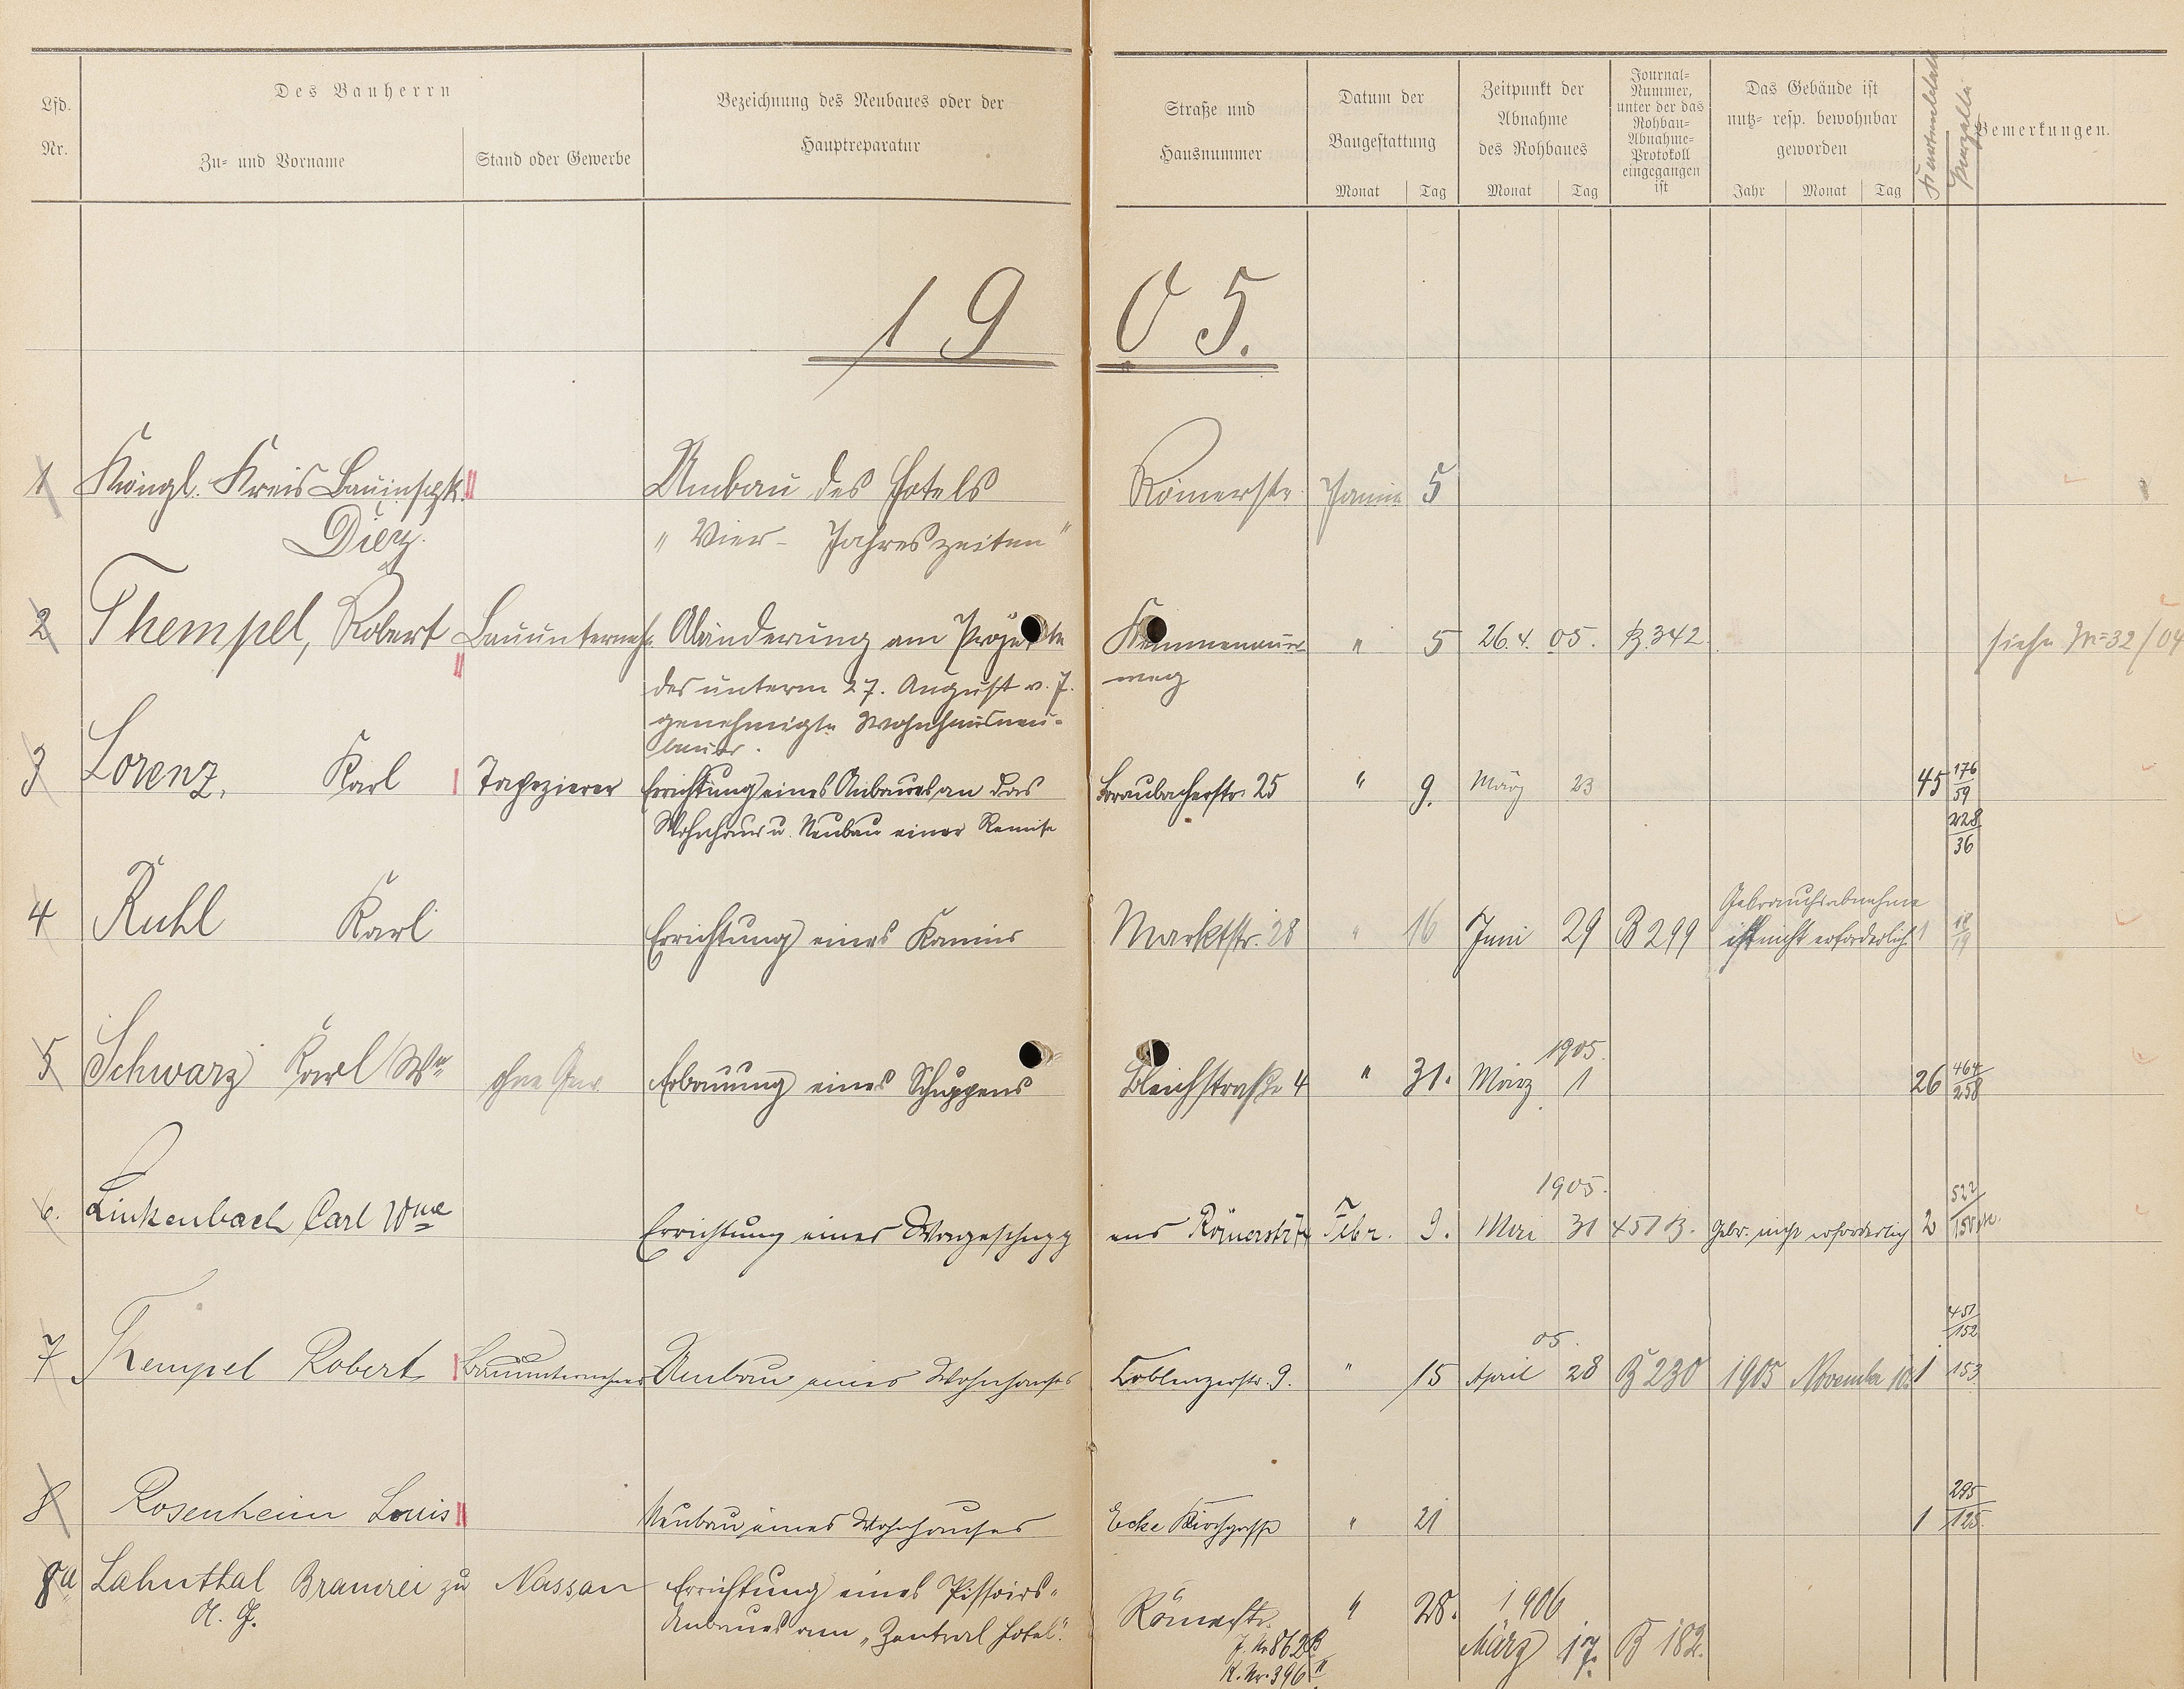 Lfd. Nr.
Des Bauherrn
Zu- und Vorname
Stand oder Gewerbe
Bezeichnung des Neubaues oder der Hauptreparatur
Straße und Hausnummer
Datum der Baugestattung
Monat Tag
Zeitpunkt der Abnahme des Rohbaues
Monat Tag
Journal-Nummer, unter der das Rohbau-Abnahme-Protokoll eingegangen ist
Das Gebäude ist nutz- resp. bewohnbar geworden
Jahr Monat Tag
Kartenblatt
Parzelle
Bemerkungen.
1905.
1 Königl. Kreis Bauinspk. Umbau des Hotels Römerstr. Januar 5
Diez. "Vier- Jahreszeiten"
2 Thempel, Robert Bauunternehr. Abänderung am Projekte Kemmenauer " 5 26.4.05. B.342 siehe No 32/04
des unterm 27. August v. J. weg
genehmigte Wohnhausneu-
baues.
3 Lorenz, Karl Tapezierer Errichtung eines Anbaues an das Braubacherstr. 25 " 9. März 23 45 176/59
Wohnhaus u. Neubau einer Remise 228/36
Gebrauchsabnahme
4 Ruhl Karl Errichtung eines Kamins Marktstr. 28 " 16 Juni 29 B 299 ist nicht erforderlich. 1 18/19
1905.
5 Schwarz Karl We ohne Gew. Erbauung eines Schuppens Bleichstraße 4 " 31. März 1 26 464/258
1905.
6. Linkenbach Carl Wwe Errichtung eines Wageschupp ens Römerstr. Febr. 9. Mai 31 451 B. Gebr. nicht erforderlich 2 522/150
05. 451/152
7 Thempel Robert Bauunternehmer Umbau eines Wohnhauses Coblenzerstr. 9. " 15 April 28 B 230 1905 November 10. 1 153
8 Rosenheim Louis Neubau eines Wohnhauses Ecke Kirchgasse " 21 1 295/125.
8a Lahnthal Brauerei zu Nassau Errichtung eines Pissoirs- Römerstr. " 28. 1906
A. G. Anbaues am "Zentral Hotel". März 17. B 182.
J. Nr. 862 B
K. Nr. 396 II